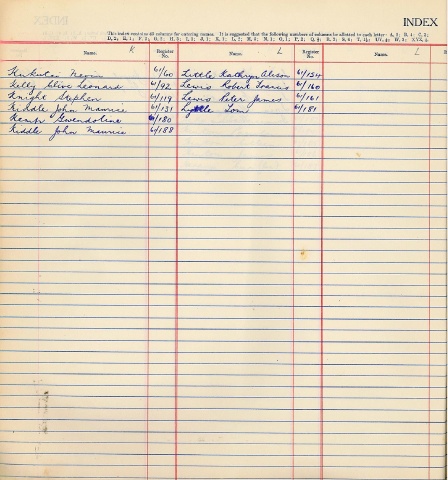 INDEX
This index contains 60 columns for entering names. It is suggested that the following numbers of columns be allotted to each letter: A, 2; B, 4; C, 5;
D, 3; E, 1; F, 2; G, 3; H, 5; I, 1; J, 1; K, 1; L, 3; M, 6; N, 1; O, 1; P, 3; Q, R, 3; S, 6; T, 2; UV, 1; W, 5; XYZ, 1.
Name. K Register No. Name. L Register No. Name. L
Negus 61/60 Little Kathryn Alison 61/154
Kelly Clive Leonard 61/92 Lewis Robert Francis 61/160
Knight Stephen 61/119 Lewis Peter James 61/161
Kiddle John Maurice 61/131 Lyttle Tom 61/181
Kemp Gwendoline 61/180
Kiddle John Maurice 61/188